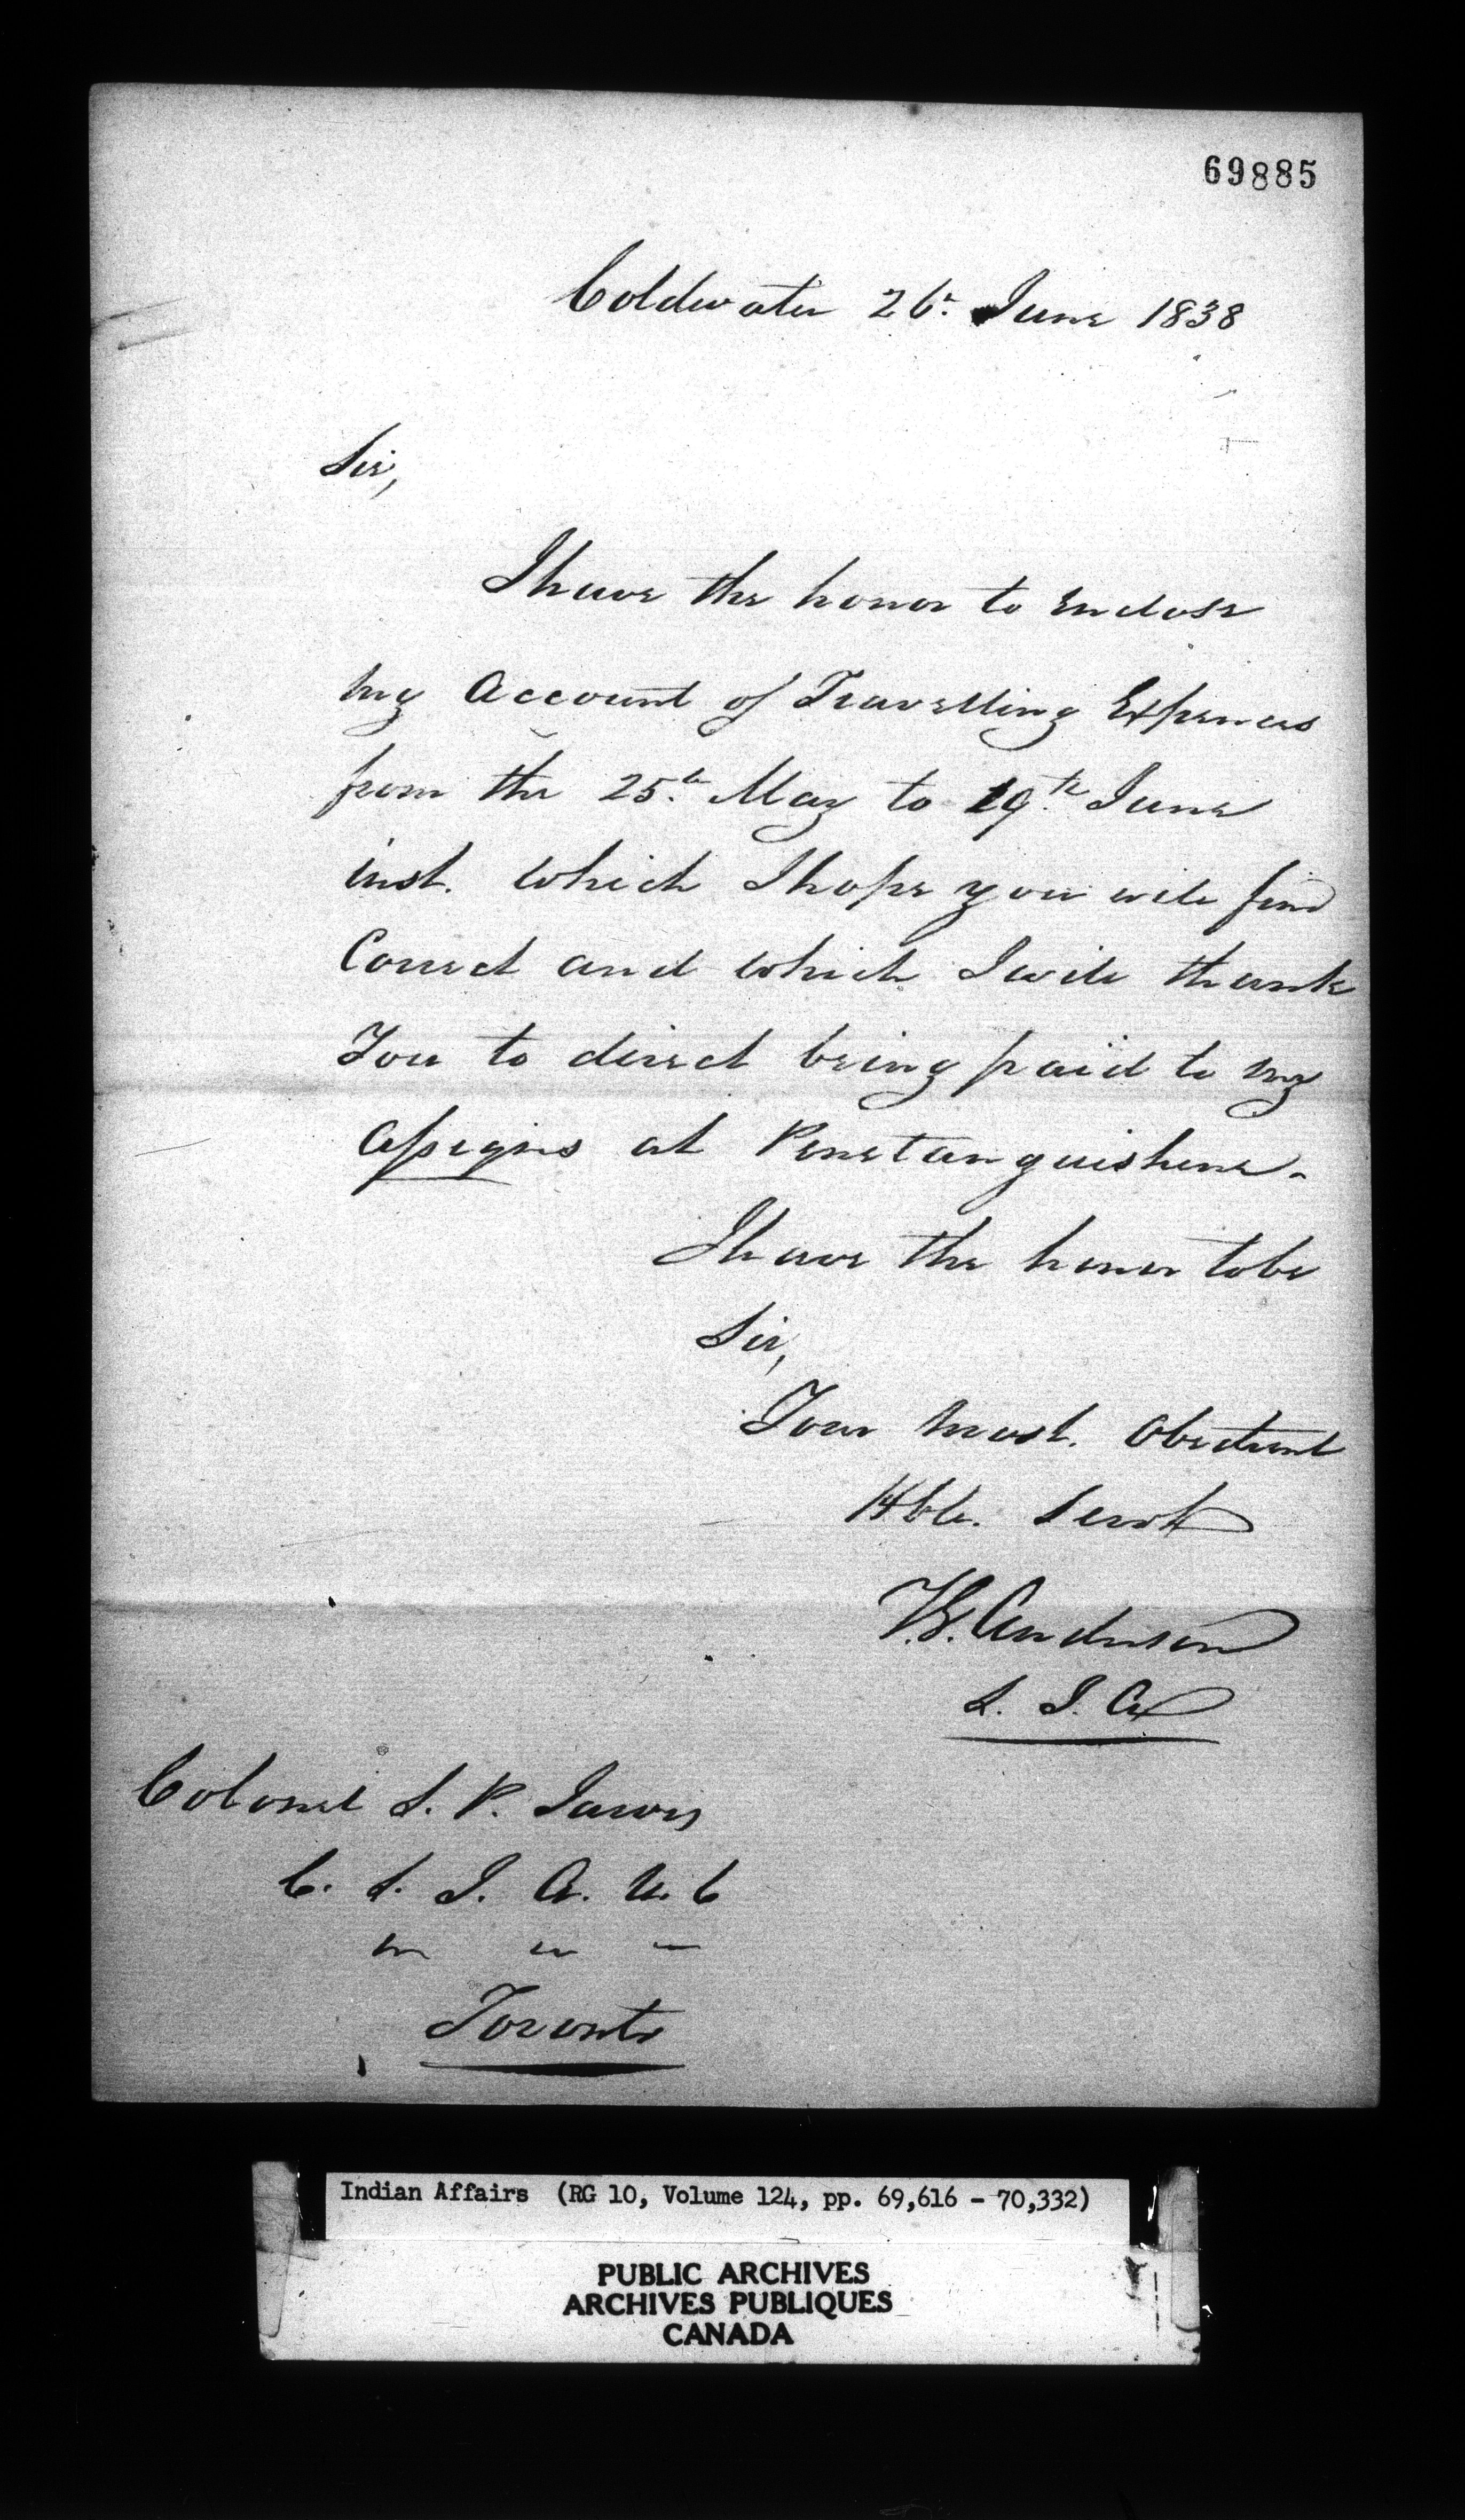 69885
Coldwater 26th June 1838
Sir,
I have the honor to enclose
my Account of Travelling Expences
from the 25th May to 19th June
inst. which I hope you will find
Correct and which I will thank
You to direct being paid to my
Assigns at Penetanguishene.
I have the honor to be
Sir,
Your most. Obedient
Hble. Servt
T.G. Anderson
S. I. A
Colonel S. P. Jarvis
C. S. I. A. U. C
Toronto
Indian Affairs (RG 10, Volume 124, pp. 69,616 - 70,332)
PUBLIC ARCHIVES
ARCHIVES PUBLIQUES
CANADA